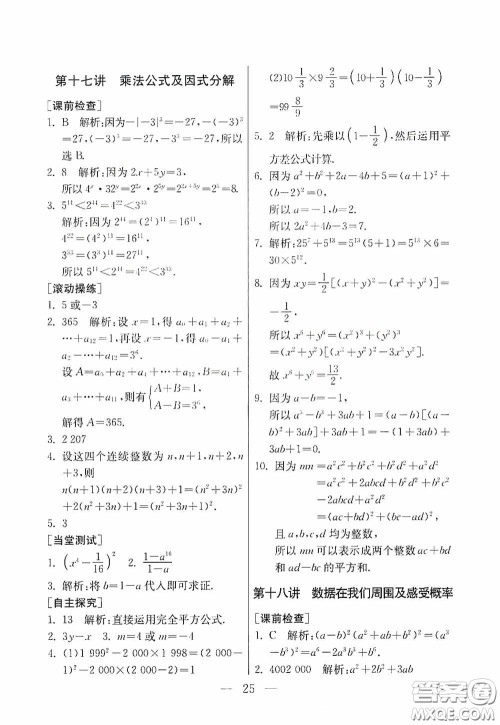 第十七讲 乘法公式及因式分解
[课前检查]
1. B 解析:因为-|-3|³=-27,-(-3)³
=27,(-3)³=-27,-3³=-27,所以
选B.
2. 8 解析:因为2x+5y=3,
所以4ˣ·32ʸ=2²ˣ·2⁵ʸ=2²ˣ⁺⁵ʸ=2³=8.
3. 5¹¹<2⁴⁴=4²²<3³³
解析:因为2⁴⁴=(2⁴)¹¹=16¹¹,
4²²=(4²)¹¹=16¹¹,
3³³=(3³)¹¹=27¹¹,
所以5¹¹<2⁴⁴=4²²<3³³.
[滚动操练]
1. 5或-3
2. 365 解析:设x=1,得a₀+a₁+a₂+
…+a₁₂=1,再设x=-1,得a₀-a₁+
a₂-…+a₁₂=3⁶.
设A=a₀+a₂+…+a₁₂,B=a₁+
a₃+…+a₁₁,则有{A+B=1, A-B=3⁶,
解得A=365.
3. 2 207
4. 设这四个连续整数为n,n+1,n+2,n+
3,则
n(n+1)(n+2)(n+3)+1=(n²+3n)
(n²+3n+2)+1=(n²+3n)²+
2(n²+3n)+1=(n²+3n+1)².
5. 3
[当堂测试]
1. (x⁴-1/16)² 2. (1-a¹⁶)/(1-a)
3. 解析:将b=1-a代人即可求证.
[自主探究]
1. 13/4 解析:直接运用完全平方公式.
2. 3y-x 3. m=4或m=-4
4. (1)1 999²-2 000×1 998=(2 000-
1)²-2 000×(2 000-2)=1.
(2)10 1/3×9 2/3=(10+1/3)(10-1/3)
=99 8/9
5. 2 解析:先乘以(1-1/2),然后运用平
方差公式计算.
6. 因为a²+b²+2a-4b+5=(a+1)²+
(b-2)²=0,
所以a=-1,b=2.
7. 解析:25⁷+5¹³=5¹³(5+1)=5¹³×6=
30×5¹².
8. 因为xy=1/2[(x+y)²-(x²+y²)]=
-1/2,
所以x⁶+y⁶=(x²)³+(y²)³
=(x²+y²)[(x²+y²)²-3x²y²].
故x⁶+y⁶=13/2.
9. 因为a-b=-1,
所以a³-b³+3ab+1=(a-b)[(a-
b)²+3ab]+3ab+1=0.
10. 因为mn=a²c²+b²c²+b²d²+a²d²
=a²c²+2abcd+b²d²+a²d²
-2abcd+b²c²
=(ac+bd)²+(bc-ad)²,
且a,b,c,d均为整数,
所以mn可以表示成两个整数ac+bd
和ad-bc的平方和.
第十八讲 数据在我们周围及感受概率
[课前检查]
1. C
2. 4002 000 解析:a²+2b²+3ab
25
答案圈
MXQE.COM